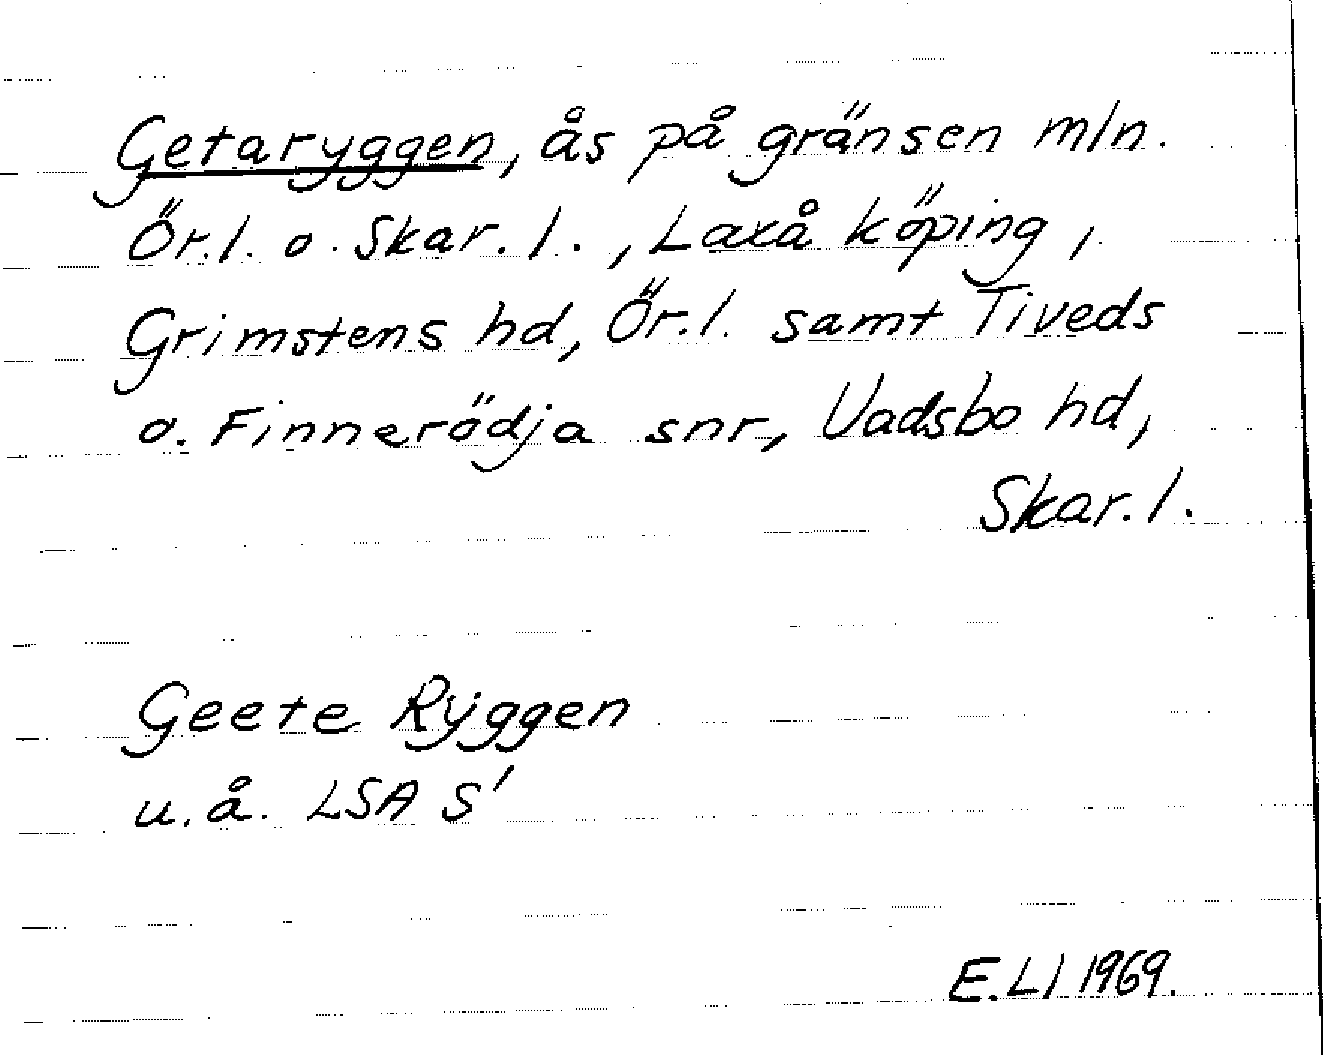 Getaryggen, ås på gränsen mln.
Ör.l. o. Skar.l., Laxå köping,
Grimstens hd, Ör.l. samt Tiveds
o. Finnerödja snr, Vadsbo hd,
Skar.l.
Geete Rÿggen
u.å. LSA S'
E.Lj 1969.